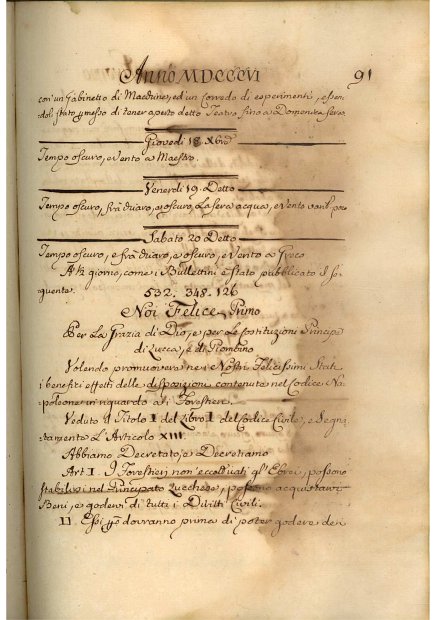 Anno MDCCCVI 91
con'un Gabinetto di Macchine, ed'un Corredo di esperimenti, essen-
doli stato pmesso di tener aperto detto Teatro fino a Domenica sera.
Giovedì 18. Xbre
Tempo oscuro, e Vento a Maestro.
Venerdì 19. Detto
Tempo oscuro, frà duaro, e oscuro, La sera acqua, e Vento
Sabato 20 Detto
Tempo oscuro, e frà duaro, e oscuro, e Vento a Greco
giorno, come i Bullettini è stato pubblicato il se-
guente.
532. 348. 126
Noi Felice Primo
Per La Grazia di Dio, e per Le Costituzioni Principe
di Lucca, e di Piombino
Volendo promuovere ne i Nostri Felicissimi Stati
i benefici effetti delle disposizioni contenute nel Codice Na-
poleone in riguardo a i Forestieri.
Veduto il Titolo I del Libro I del Codice Civile, e Segna-
tamente L'Articolo XIII
Abbiamo Decretato, e Decretiamo
Art I. I Forestieri non'eccettuati gl'Ebrei, possono
stabilirsi nel Principato Lucchese, possono acquistarvi
Beni, e godervi di tutti i Diritti Civili.
II. Essi pò dovranno prima di poter godere dei